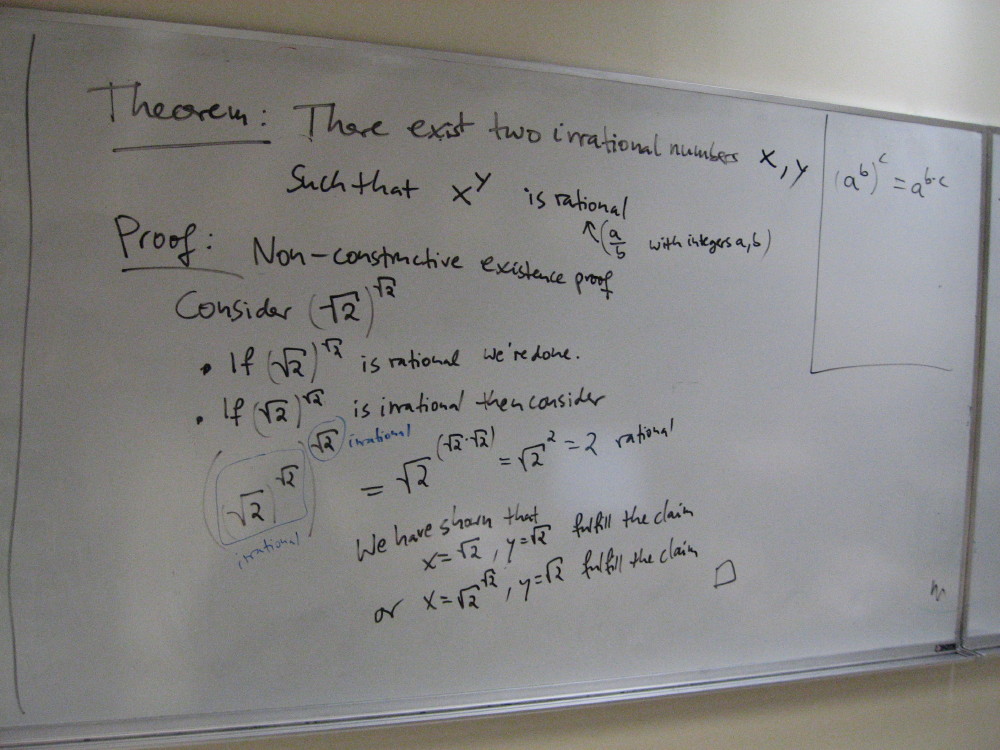 Theorem: There exist two irrational numbers x, y
such that x^y is rational
↖(a/b with integers a, b)
Proof: Non-constructive existence proof
Consider (√2)^√2
• If (√2)^√2 is rational we're done.
• If (√2)^√2 is irrational then consider
((√2)^√2)^√2 irrational = √2^(√2·√2) = √2^2 = 2 rational
irrational
We have shown that
x=√2, y=√2 fulfill the claim
or x=√2^√2, y=√2 fulfill the claim □
(a^b)^c = a^b·c